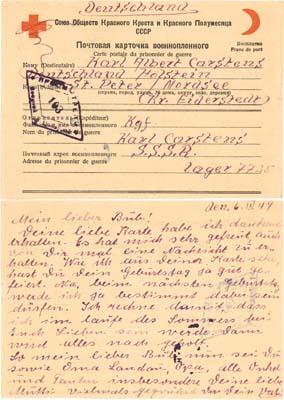 Deutschland
Союз Обществ Красного Креста и Красного Полумесяца
СССР
Почтовая карточка военнопленного
Бесплатно
Franc de port
Carte postale du prisonnier de guerre
Кому (Destinataire) Karl Albert Carstens
Deutschland Holstein
St. Peter Nordsee
(Kr. Eiderstedt)
Отправитель (Expéditeur) Kgf
Фамилия и имя военнопленного
Nom du prisonnier de guerre Karl Carstens
Почтовый адрес военнопленного S.S.S.R.
Adresse du prisonnier de guerre
Lager 7735
den, 6.III.49
Mein lieber Bub!
Deine liebe Karte habe ich dankend
erhalten. Es hat mich sehr gefreut auch
von Dir mal eine Nachricht zu er-
halten. Wie ich aus Deiner Karte sehe,
hast Du Dein Geburtstag ja gut ge-
feiert. Na, beim nächsten Geburtst.
werde ich ja bestimmt dabei sein
dürfen. Ich rechne damit, dass
ich im laufe des Sommers bei
Euch Lieben sein werde. Dann
wird alles nach geholt.
So mein lieber Bub nun sei Du
sowie Oma Landau, Opa, alle Onkel
und Tanten insbesondere Deine liebe
Mutti vielmals gegrüsst von Dein Vati